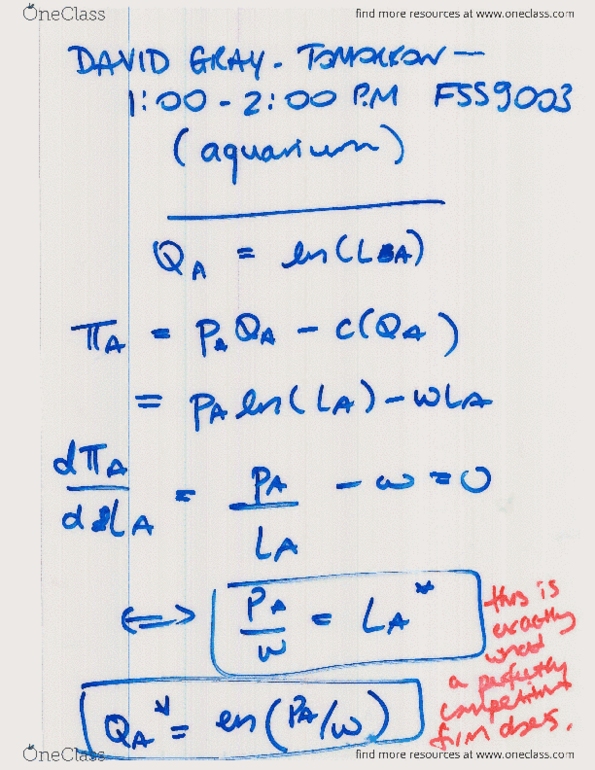 OneClass find more resources at www.oneclass.com
DAVID GRAY - TOMORROW —
1:00 - 2:00 P.M FSS9003
(aquarium)
Q_A = ln(L_A)
π_A = P_A Q_A - C(Q_A)
= P_A ln(L_A) - wL_A
dπ_A/dL_A = P_A/L_A - w = 0
⟺ P_A/w = L_A*
this is
exactly
what
a perfectly
competitive
firm does.
Q_A* = ln(P_A/w)
OneClass find more resources at www.oneclass.com